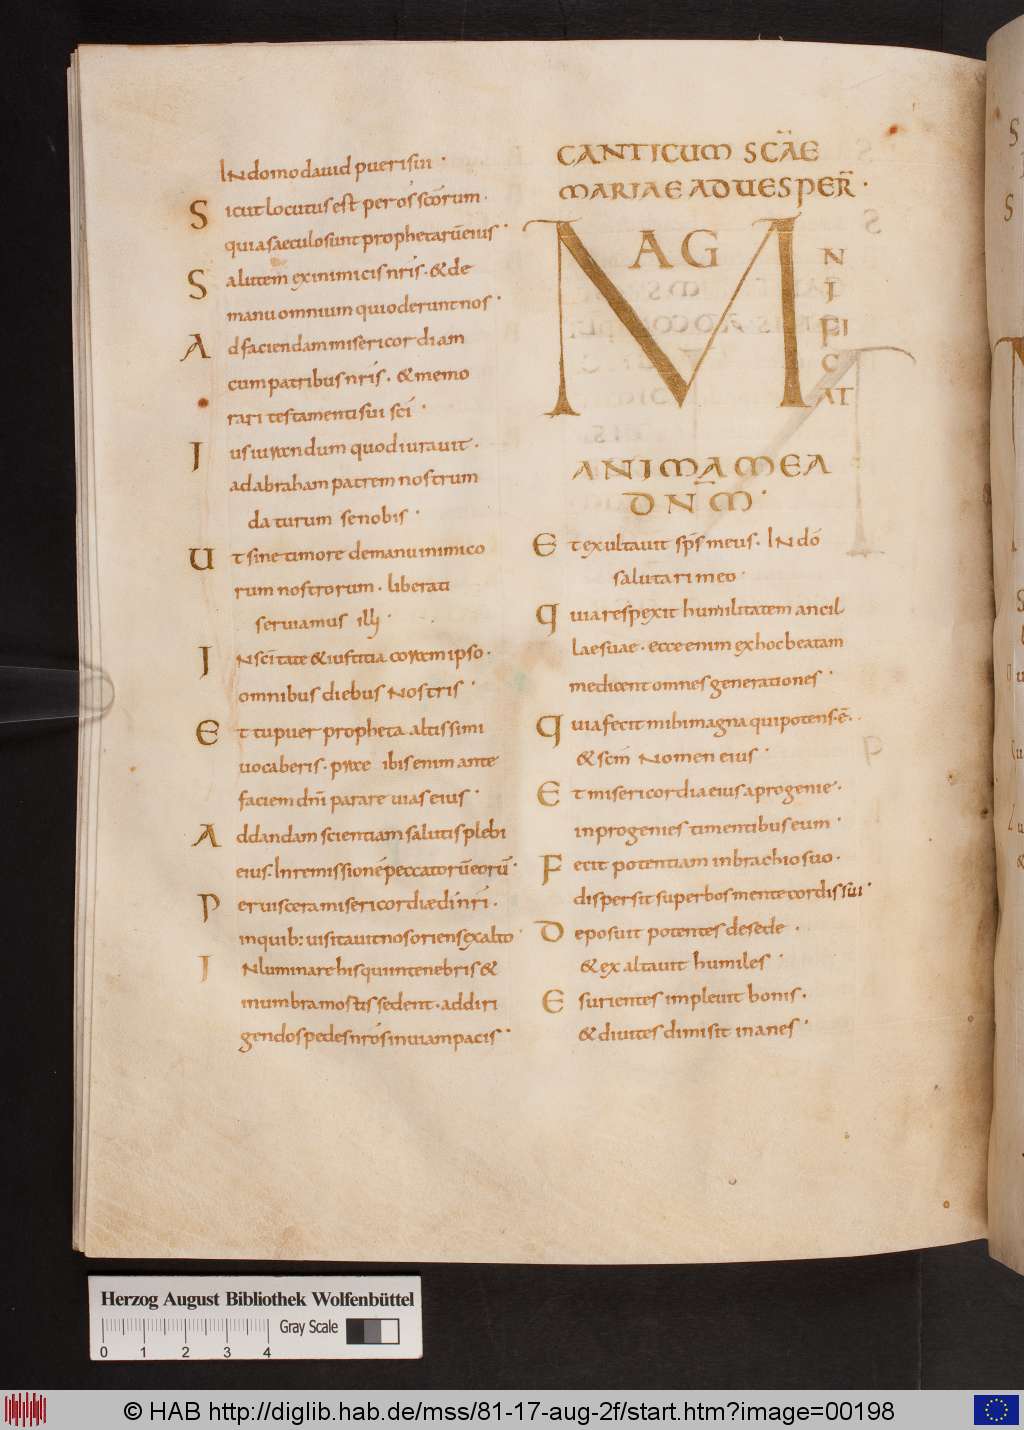 IN domo dauid pueri sui ·
Sicut locutus est per os scōrum ·
qui a saeculo sunt prophetarū eius ·
Salutem ex inimicis nr̄is · & de
manu omnium qui oderunt nos ·
Ad faciendam misericordiam
cum patribus nr̄is · & memo
rari testamenti sui sc̄i ·
Iusiurandum quod iurauit ·
ad abraham patrem nostrum
daturum se nobis ·
Ut sine timore de manu inimico
rum nostrorum · liberati
seruiamus illi ·
IN sc̄itate & iustitia coram ipso ·
omnibus diebus Nostris ·
Et tu puer propheta altissimi
uocaberis · prae ibis enim ante
faciem dn̄i parare uias eius ·
Ad dandam scientiam salutis plebi
eius · In remissionē peccatorū eorū ·
Per uiscera misericordiae dī nr̄i ·
in quib: uisitauit nos oriens ex alto
INluminare his qui in tenebris &
in umbra mortis sedent · ad diri
gendos pedes nr̄os in uiam pacis ·
CANTICUM SC̄AE
MARIAE AD UESPER̄ ·
MAGNIFICAT
ANIMA MEA
DN̄M ·
Et exultauit sp̄s meus · IN dō
salutari meo ·
Quia respexit humilitatem ancil
lae suae · ecce enim ex hoc beatam
me dicent omnes generationes ·
Quia fecit mihi magna qui potens · ē ·
& sc̄m Nomen eius ·
Et misericordia eius a progenie ·
in progenies timentibus eum ·
Fecit potentiam in brachio suo ·
dispersit superbos mente cordis sui ·
Deposuit potentes de sede ·
& exaltauit humiles ·
Esurientes impleuit bonis ·
& diuites dimisit inanes ·
Herzog August Bibliothek Wolfenbüttel
Gray Scale
0 1 2 3 4
© HAB http://diglib.hab.de/mss/81-17-aug-2f/start.htm?image=00198